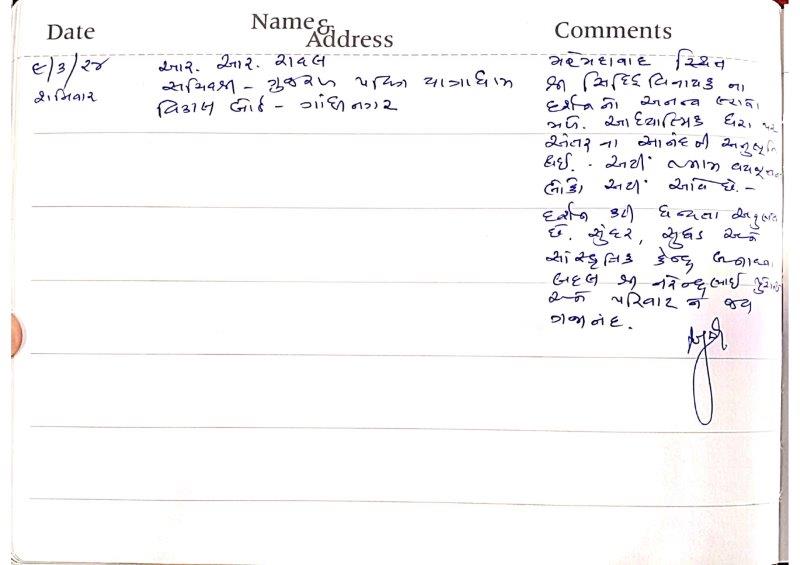 Date
Name & Address
Comments
૯/૩/૨૪
શનિવાર
આર. આર. રાવલ
સચિવશ્રી - ગુજરાત પવિત્ર યાત્રાધામ
વિકાસ બોર્ડ - ગાંધીનગર
મહેમદાવાદ સ્થિત
શ્રી સિધ્ધિ વિનાયક ના
દર્શન નો અનન્ય લ્હાવો
મળ્યો. આધ્યાત્મિક ધરા પર
અંતર ના આનંદ ની અનુભૂતિ
થઈ. અહીં તમામ વયજૂથના
લોકો અહીં આવે છે.-
દર્શન કરી ધન્યતા અનુભવે
છે. સુંદર, સુઘડ અને
સાંસ્કૃતિક કેન્દ્ર બનાવવા
બદલ શ્રી નરેન્દ્રભાઈ
અને પરિવાર ને જય
ગજાનંદ.